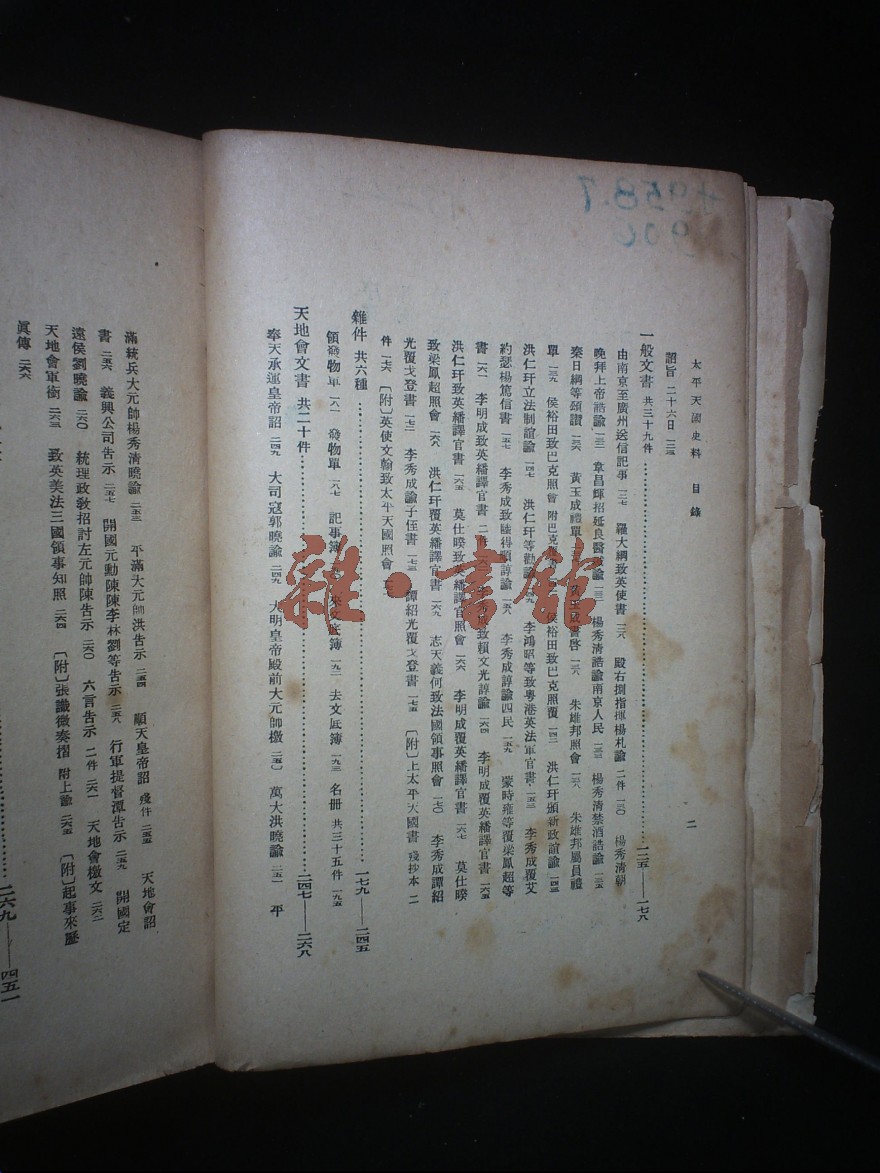 太平天國史料 目錄
二
詔旨 二十六日
一般文書 共三十九件 一二五——一七八
由南京至廣州送信記事 一二七 羅大綱致英使書 一二八 殿右捌指揮楊札諭 二件 一三〇 楊秀清朝
晚拜上帝誥諭 韋昌輝招延良醫誡諭 楊秀清誥諭南京人民 楊秀清禁酒誥諭
秦日綱等頌讚 黃玉成禮單 黃玉成書啓 朱雄邦照會 朱雄邦屬員禮
單 一三九 侯裕田致巴克照會 附巴克 侯裕田致巴克照覆 洪仁玕頒新政諠諭
洪仁玕立法制諠諭 洪仁玕等勸諭 李鴻昭等致粵港英法軍官書 李秀成覆艾
約瑟楊篤信書 一五七 李秀成致陸得順諄諭 李秀成諄諭四民 一五九 蒙時雍等覆梁鳳超等
書 一六一 李明成致英繙譯官書 二 李秀成致賴文光諄諭 一六四 李明成覆英繙譯官書 一六五
洪仁玕致英繙譯官書 一六五 莫仕暌致英繙譯官照會 一六六 李明成覆英繙譯官書 一六七 莫仕暌
致梁鳳超照會 一六八 洪仁玕覆英繙譯官書 一六九 志天義何致法國領事照會 一七〇 李秀成譚紹
光覆戈登書 李秀成諭子侄書 譚紹光覆戈登書 一七五 〔附〕上太平天國書 殘抄本 二
件 一七六 〔附〕英使文翰致太平天國照會
雜件 共六種 一七九——二四五
領發物單 一八一 發物單 一八七 記事簿 來文底簿 一九二 去文底簿 一九三 名冊 共三十五件 一九五
天地會文書 共二十件 二四七——二六八
奉天承運皇帝詔 二四九 大司寇郭曉諭 二四九 大明皇帝殿前大元帥檄 二五〇 萬大洪曉諭 二五一 平
滿統兵大元帥楊秀清曉諭 二五三 平滿大元帥洪告示 二五四 順天皇帝詔 殘件 二五五 天地會詔
書 二五六 義興公司告示 二五七 開國元勳陳陳李林劉等告示 二五八 行軍提督潭告示 二五九 開國定
遠侯劉曉諭 二六〇 統理政教招討左元帥陳告示 二六〇 六言告示 二件 二六一 天地會檄文 二六二
天地會軍銜 二六三 致英美法三國領事知照 二六四 〔附〕張讖微奏摺 附上諭 二六五 〔附〕起事來歷
眞傳 二六六
二六九——四五一
958.7
906
雜·書館